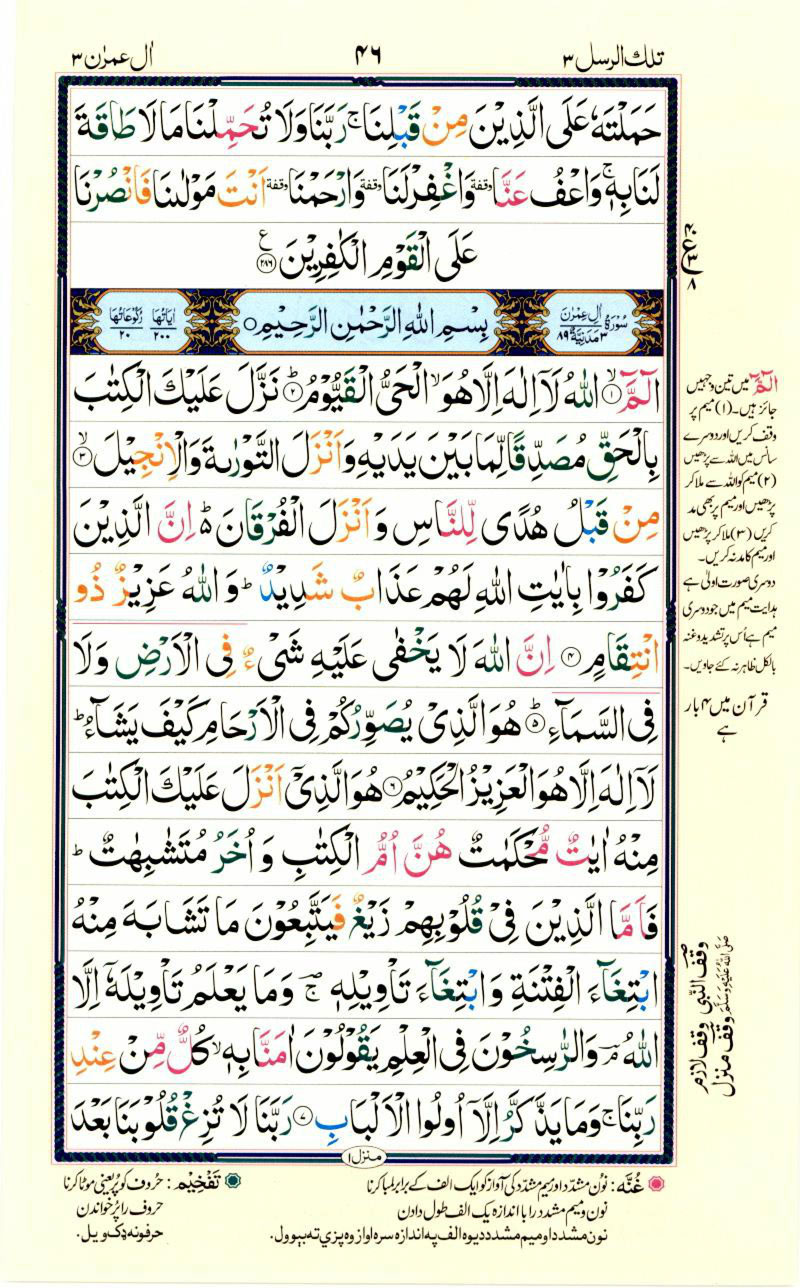 تلك الرسل ۳
۴۶
اٰل عمرٰن ۳
حَمَلْتَهٗ عَلَى الَّذِيْنَ مِنْ قَبْلِنَا ۚ رَبَّنَا وَلَا تُحَمِّلْنَا مَا لَا طَاقَةَ
لَنَا بِهٖ ۚ وَاعْفُ عَنَّا وقفة وَاغْفِرْ لَنَا وقفة وَارْحَمْنَا وقفة اَنْتَ مَوْلٰىنَا فَانْصُرْنَا
عَلَى الْقَوْمِ الْكٰفِرِيْنَ ﴿۲۸۶﴾ ع
سُوْرَةُ اٰلِ عِمْرٰنَ ۳ مَدَنِيَّةٌ ۸۹
بِسْمِ اللّٰهِ الرَّحْمٰنِ الرَّحِيْمِ ○
اٰيَاتُهَا ۲۰۰ رُكُوْعَاتُهَا ۲۰
الٓمّٓ ۙ﴿۱﴾ اللّٰهُ لَآ اِلٰهَ اِلَّا هُوَ ۙ الْحَىُّ الْقَيُّوْمُ ؕ﴿۲﴾ نَزَّلَ عَلَيْكَ الْكِتٰبَ
بِالْحَقِّ مُصَدِّقًا لِّمَا بَيْنَ يَدَيْهِ وَاَنْزَلَ التَّوْرٰىةَ وَالْاِنْجِيْلَ ۙ﴿۳﴾
مِنْ قَبْلُ هُدًى لِّلنَّاسِ وَاَنْزَلَ الْفُرْقَانَ ؕ۬ اِنَّ الَّذِيْنَ
كَفَرُوْا بِاٰيٰتِ اللّٰهِ لَهُمْ عَذَابٌ شَدِيْدٌ ؕ وَاللّٰهُ عَزِيْزٌ ذُو
انْتِقَامٍ ﴿۴﴾ اِنَّ اللّٰهَ لَا يَخْفٰى عَلَيْهِ شَىْءٌ فِى الْاَرْضِ وَلَا
فِى السَّمَآءِ ؕ﴿۵﴾ هُوَ الَّذِىْ يُصَوِّرُكُمْ فِى الْاَرْحَامِ كَيْفَ يَشَآءُ ؕ
لَآ اِلٰهَ اِلَّا هُوَ الْعَزِيْزُ الْحَكِيْمُ ﴿۶﴾ هُوَ الَّذِىْٓ اَنْزَلَ عَلَيْكَ الْكِتٰبَ
مِنْهُ اٰيٰتٌ مُّحْكَمٰتٌ هُنَّ اُمُّ الْكِتٰبِ وَاُخَرُ مُتَشٰبِهٰتٌ ؕ
فَاَمَّا الَّذِيْنَ فِىْ قُلُوْبِهِمْ زَيْغٌ فَيَتَّبِعُوْنَ مَا تَشَابَهَ مِنْهُ
ابْتِغَآءَ الْفِتْنَةِ وَابْتِغَآءَ تَاْوِيْلِهٖ ۚ وَمَا يَعْلَمُ تَاْوِيْلَهٗٓ اِلَّا
اللّٰهُ ۘ وَالرّٰسِخُوْنَ فِى الْعِلْمِ يَقُوْلُوْنَ اٰمَنَّا بِهٖ ۙ كُلٌّ مِّنْ عِنْدِ
رَبِّنَا ۚ وَمَا يَذَّكَّرُ اِلَّآ اُولُوا الْاَلْبَابِ ﴿۷﴾ رَبَّنَا لَا تُزِغْ قُلُوْبَنَا بَعْدَ
منزل ۱
الٓمّٓ میں تین وجہیں
جائز ہیں۔ (۱) میم پر
وقف کریں اور دوسرے
سانس میں اللہ سے پڑھیں
(۲) میم کو اللہ سے ملا کر
پڑھیں اور میم پر بھی مد
کریں (۳) ملا کر پڑھیں
اور میم کا مد نہ کریں۔
دوسری صورت اولیٰ ہے
ہدایت میم میں جو دوسری
میم ہے اُس پر تشدید و غنہ
بالکل ظاہر نہ کئے جاویں۔
قرآن میں ۴ بار
ہے
وقف النبی ﷺ
وقف لازم
وقف منزل
غُنَّه : نون مشدد اور میم مشدد کی آواز کو ایک الف کے برابر لمبا کرنا
نون و میم مشدد را با اندازہ یک الف طول دادن
نون مشدد او میم مشدد دیوه الف په اندازه سره اواز وه پزې ته ببوول.
تَفْخِیْم : حروف کو پُر یعنی موٹا کرنا
حروف را پر خواندن
حرفونه ډک ویل.